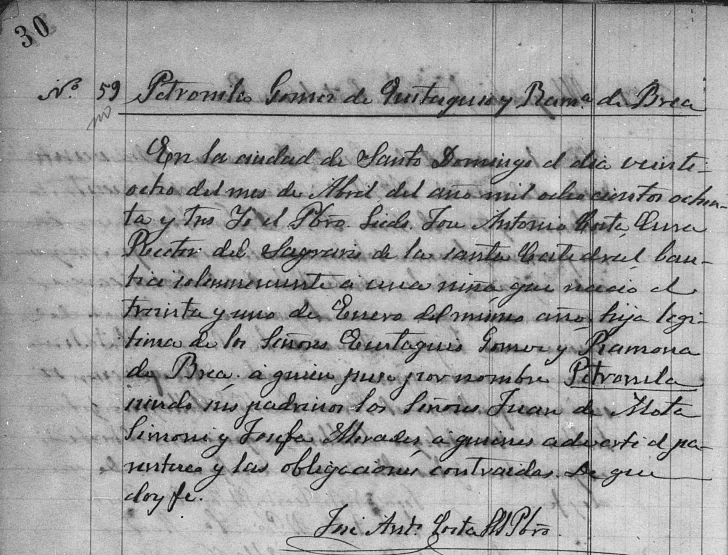 30
No. 59 Petronila Gomez de Eustaquio y Rama. de Brea
no
En la ciudad de Santo Domingo el dia veinti-
ocho del mes de Abril del año mil ochocientos ochen-
ta y tres Yo el Pbro. Licdo. José Antonio Costa Cura
Rector del Sagrario de la santa Catedral bau-
ticé solemnemente a una niña que nació el
treinta y uno de Enero del mismo año, hija legi-
tima de los Señores Eustaquio Gomez y Ramona
de Brea. a quien puse por nombre Petronila
siendo sus padrinos los Señores Juan de Mota
Simoni y Josefa Mercedes a quienes advertí el pa-
rentesco y las obligaciones contraidas. De que
doy fe.
José Anto. Costa Pbro.